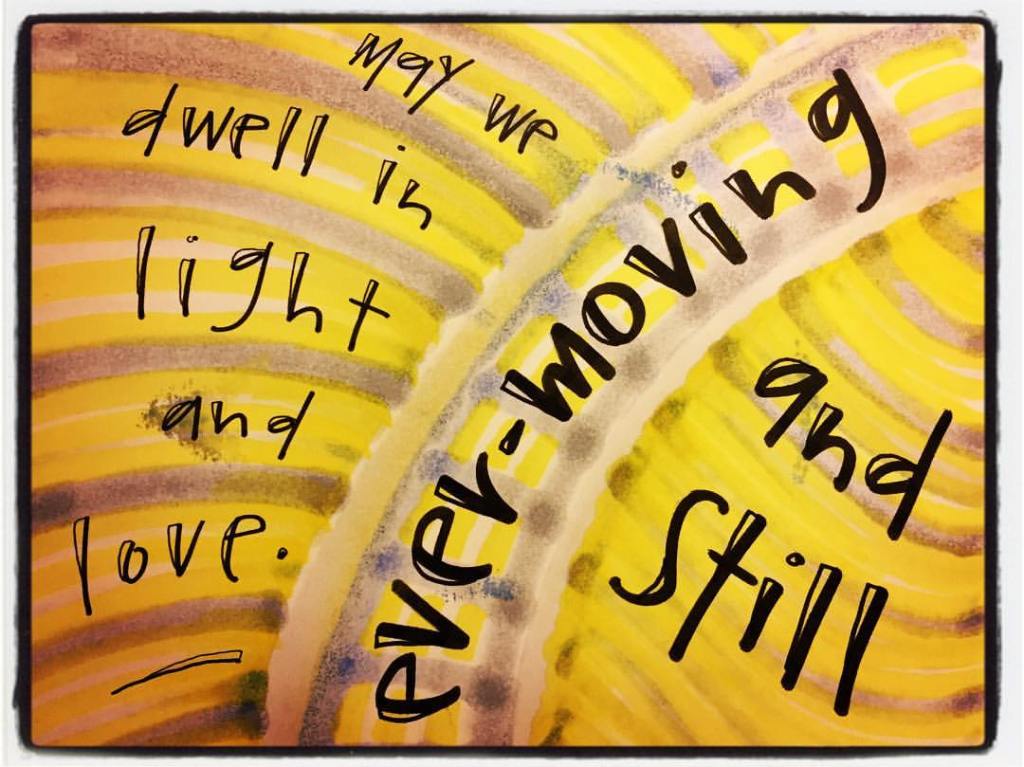 May we
dwell in
light
and
love.
ever-moving
and
Still